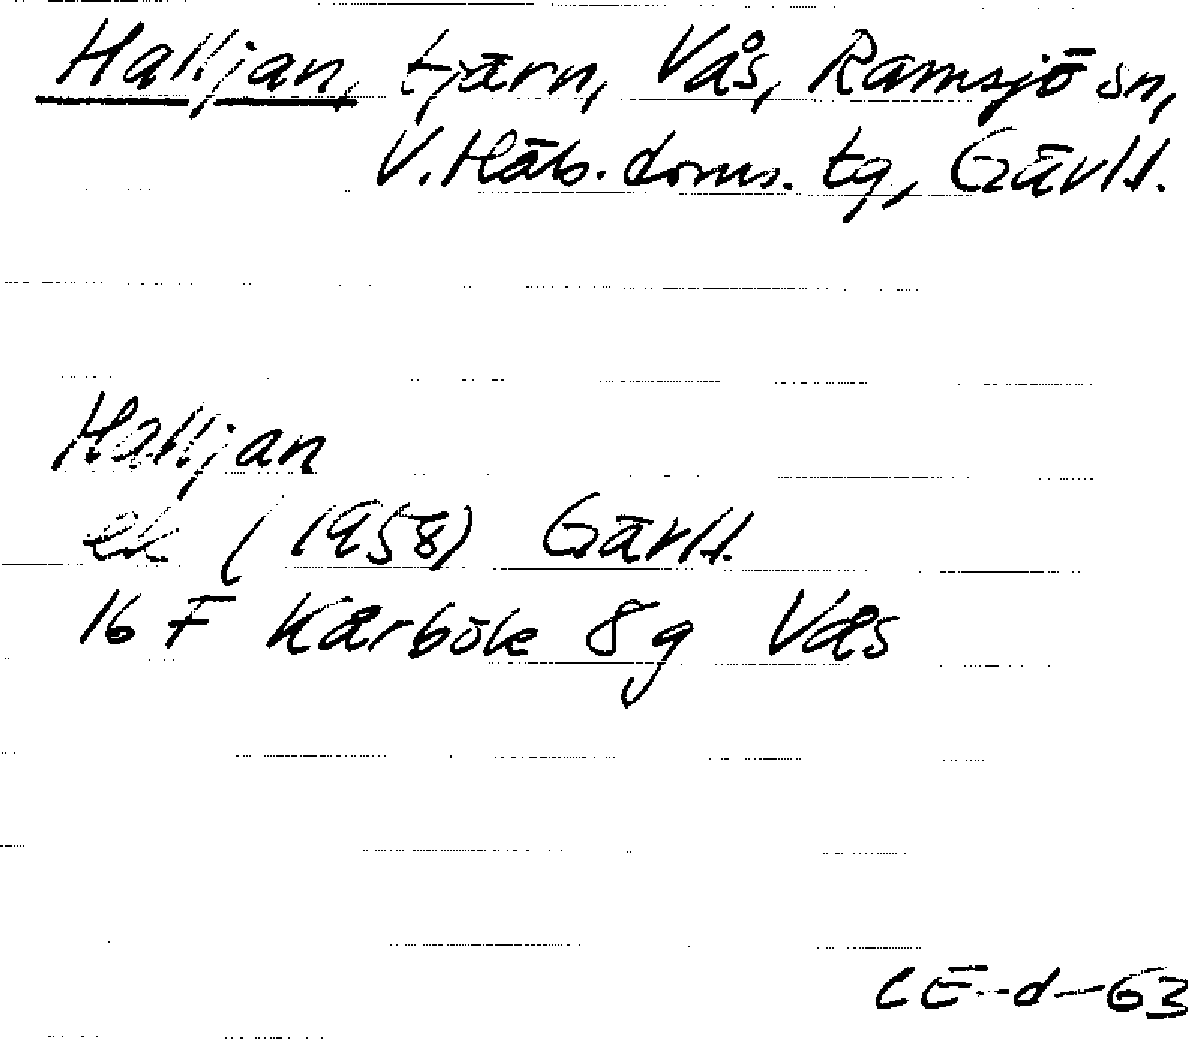 Halljan, tjärn, Vås, Ramsjö sn,
V. Häls. doms. tg, Gävl.
Halljan
ek (1958) Gävl.
16 F Kårböle 8g Vås
CE-d-63